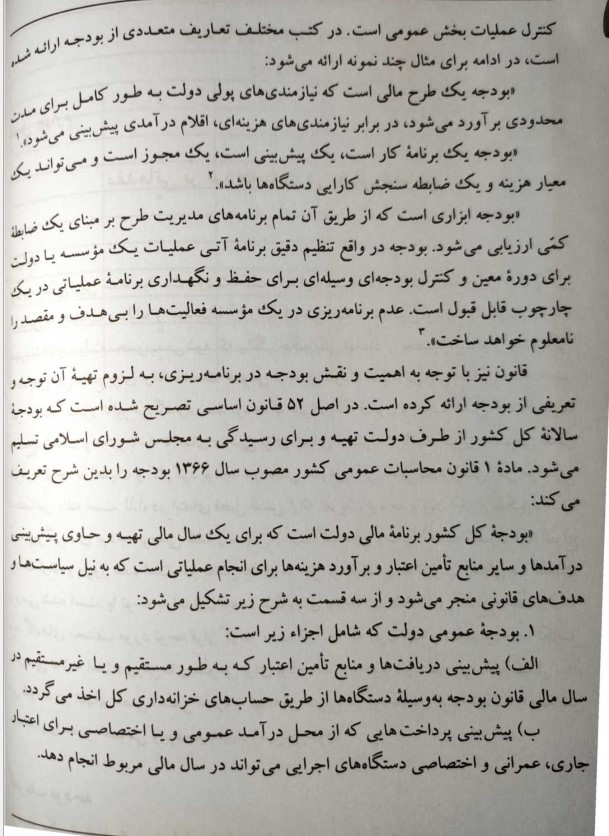 کنترل عملیات بخش عمومی است. در کتب مختلف تعاریف متعددی از بودجه ارائه شده
است، در ادامه برای مثال چند نمونه ارائه می‌شود:
«بودجه یک طرح مالی است که نیازمندی‌های پولی دولت به طور کامل برای مدت
محدودی برآورد می‌شود، در برابر نیازمندی‌های هزینه‌ای، اقلام درآمدی پیش‌بینی می‌شود».۱
«بودجه یک برنامهٔ کار است، یک پیش‌بینی است، یک مجوز است و می‌تواند یک
معیار هزینه و یک ضابطه سنجش کارایی دستگاه‌ها باشد».۲
«بودجه ابزاری است که از طریق آن تمام برنامه‌های مدیریت طرح بر مبنای یک ضابطهٔ
کمّی ارزیابی می‌شود. بودجه در واقع تنظیم دقیق برنامهٔ آتی عملیات یک مؤسسه یا دولت
برای دورهٔ معین و کنترل بودجه‌ای وسیله‌ای برای حفظ و نگهداری برنامهٔ عملیاتی در یک
چارچوب قابل قبول است. عدم برنامه‌ریزی در یک مؤسسه فعالیت‌ها را بی‌هدف و مقصد را
نامعلوم خواهد ساخت».۳
قانون نیز با توجه به اهمیت و نقش بودجه در برنامه‌ریزی، به لزوم تهیهٔ آن توجه و
تعریفی از بودجه ارائه کرده است. در اصل ۵۲ قانون اساسی تصریح شده است که بودجهٔ
سالانهٔ کل کشور از طرف دولت تهیه و برای رسیدگی به مجلس شورای اسلامی تسلیم
می‌شود. مادهٔ ۱ قانون محاسبات عمومی کشور مصوب سال ۱۳۶۶ بودجه را بدین شرح تعریف
می‌کند:
«بودجهٔ کل کشور برنامهٔ مالی دولت است که برای یک سال مالی تهیه و حاوی پیش‌بینی
درآمدها و سایر منابع تأمین اعتبار و برآورد هزینه‌ها برای انجام عملیاتی است که به نیل سیاست‌ها و
هدف‌های قانونی منجر می‌شود و از سه قسمت به شرح زیر تشکیل می‌شود:
۱. بودجهٔ عمومی دولت که شامل اجزاء زیر است:
الف) پیش‌بینی دریافت‌ها و منابع تأمین اعتبار که به طور مستقیم و یا غیرمستقیم در
سال مالی قانون بودجه به‌وسیلهٔ دستگاه‌ها از طریق حساب‌های خزانه‌داری کل اخذ می‌گردد.
ب) پیش‌بینی پرداخت‌هایی که از محل درآمد عمومی و یا اختصاصی برای اعتبار
جاری، عمرانی و اختصاصی دستگاه‌های اجرایی می‌تواند در سال مالی مربوط انجام دهد.